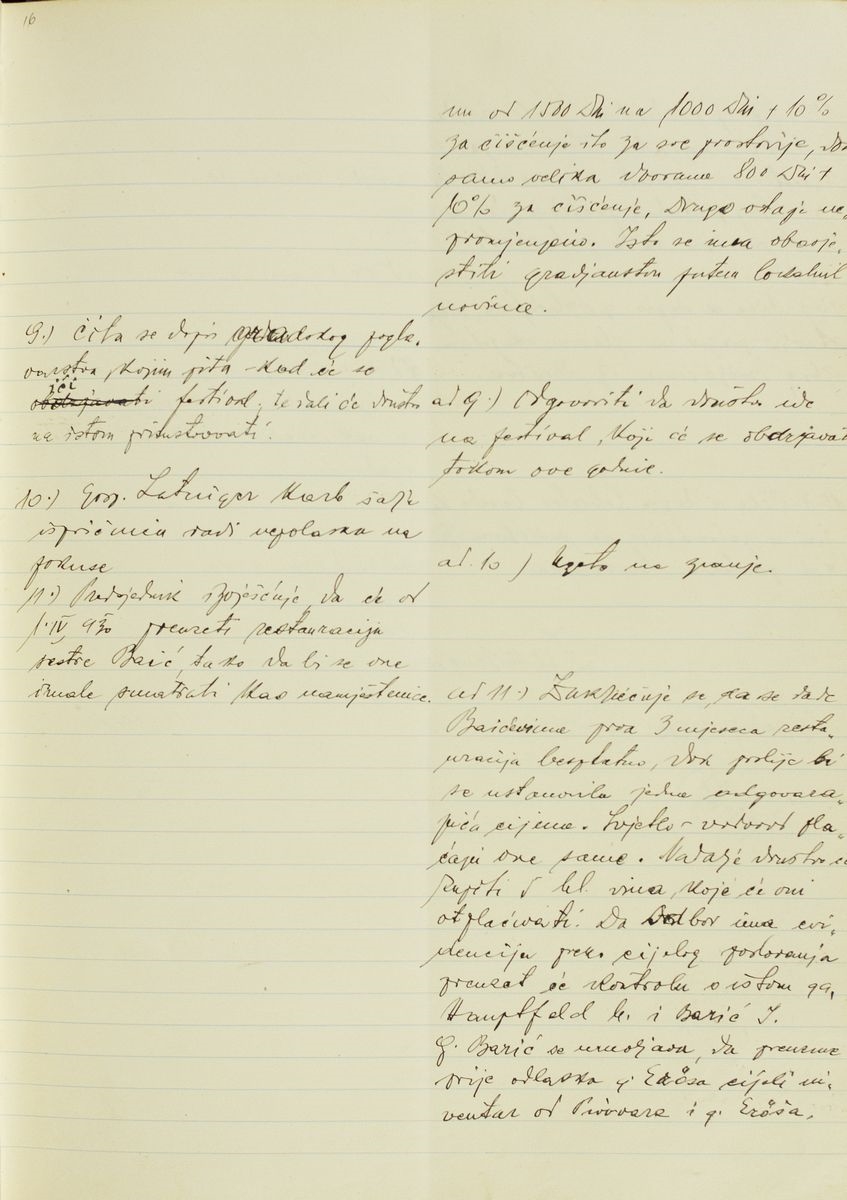 16
9.) Čita se dopis gradskog pogla-
varstva, kojim pita kad će se
ići
obdržavati festival, te dali će društvo
na istom prisustvovati.
10.) Gosp. Latniger Karlo šalje
ispričnicu radi nepolaska na
pokuse
11.) Predsjednik izvješćuje, da će od
1. IV. 930 preuzeti restauraciju
sestre Baić, tako da bi se one
imale smatrati kao namještenice.
nu od 1500 Din na 1000 Din + 10%
za čišćenje i to za sve prostorije, dok
samo velika dvorana 800 Din +
10% za čišćenje, drugo ostaje ne-
promjenjeno. Isto se ima obavje-
stiti gradjanstvo putem lokalnih
novina.
ad 9.) Odgovoriti da društvo ide
na festival, koji će se obdržavati
tokom ove godine.
ad. 10) Uzeto na znanje.
ad 11.) Zaključuje se, da se dade
Baićevima prva 3 mjeseca resta-
uracija besplatno, dok poslije bi
se ustanovila jedna odgovara-
juća cijena. Svjetlo - vodovod pla-
ćaju one same. Nadalje društvo će
kupiti 5 hl. vina, koje će oni
otplaćivati. Da odbor ima evi-
denciju preko cijelog poslovanja
preuzet će kontrolu o istom gg.
Hauptfeld i Barić I.
G. Barić se umoljava, da preuzme
prije odlaska g. Erösa cijeli in-
ventar od Pivovara i g. Eröša.